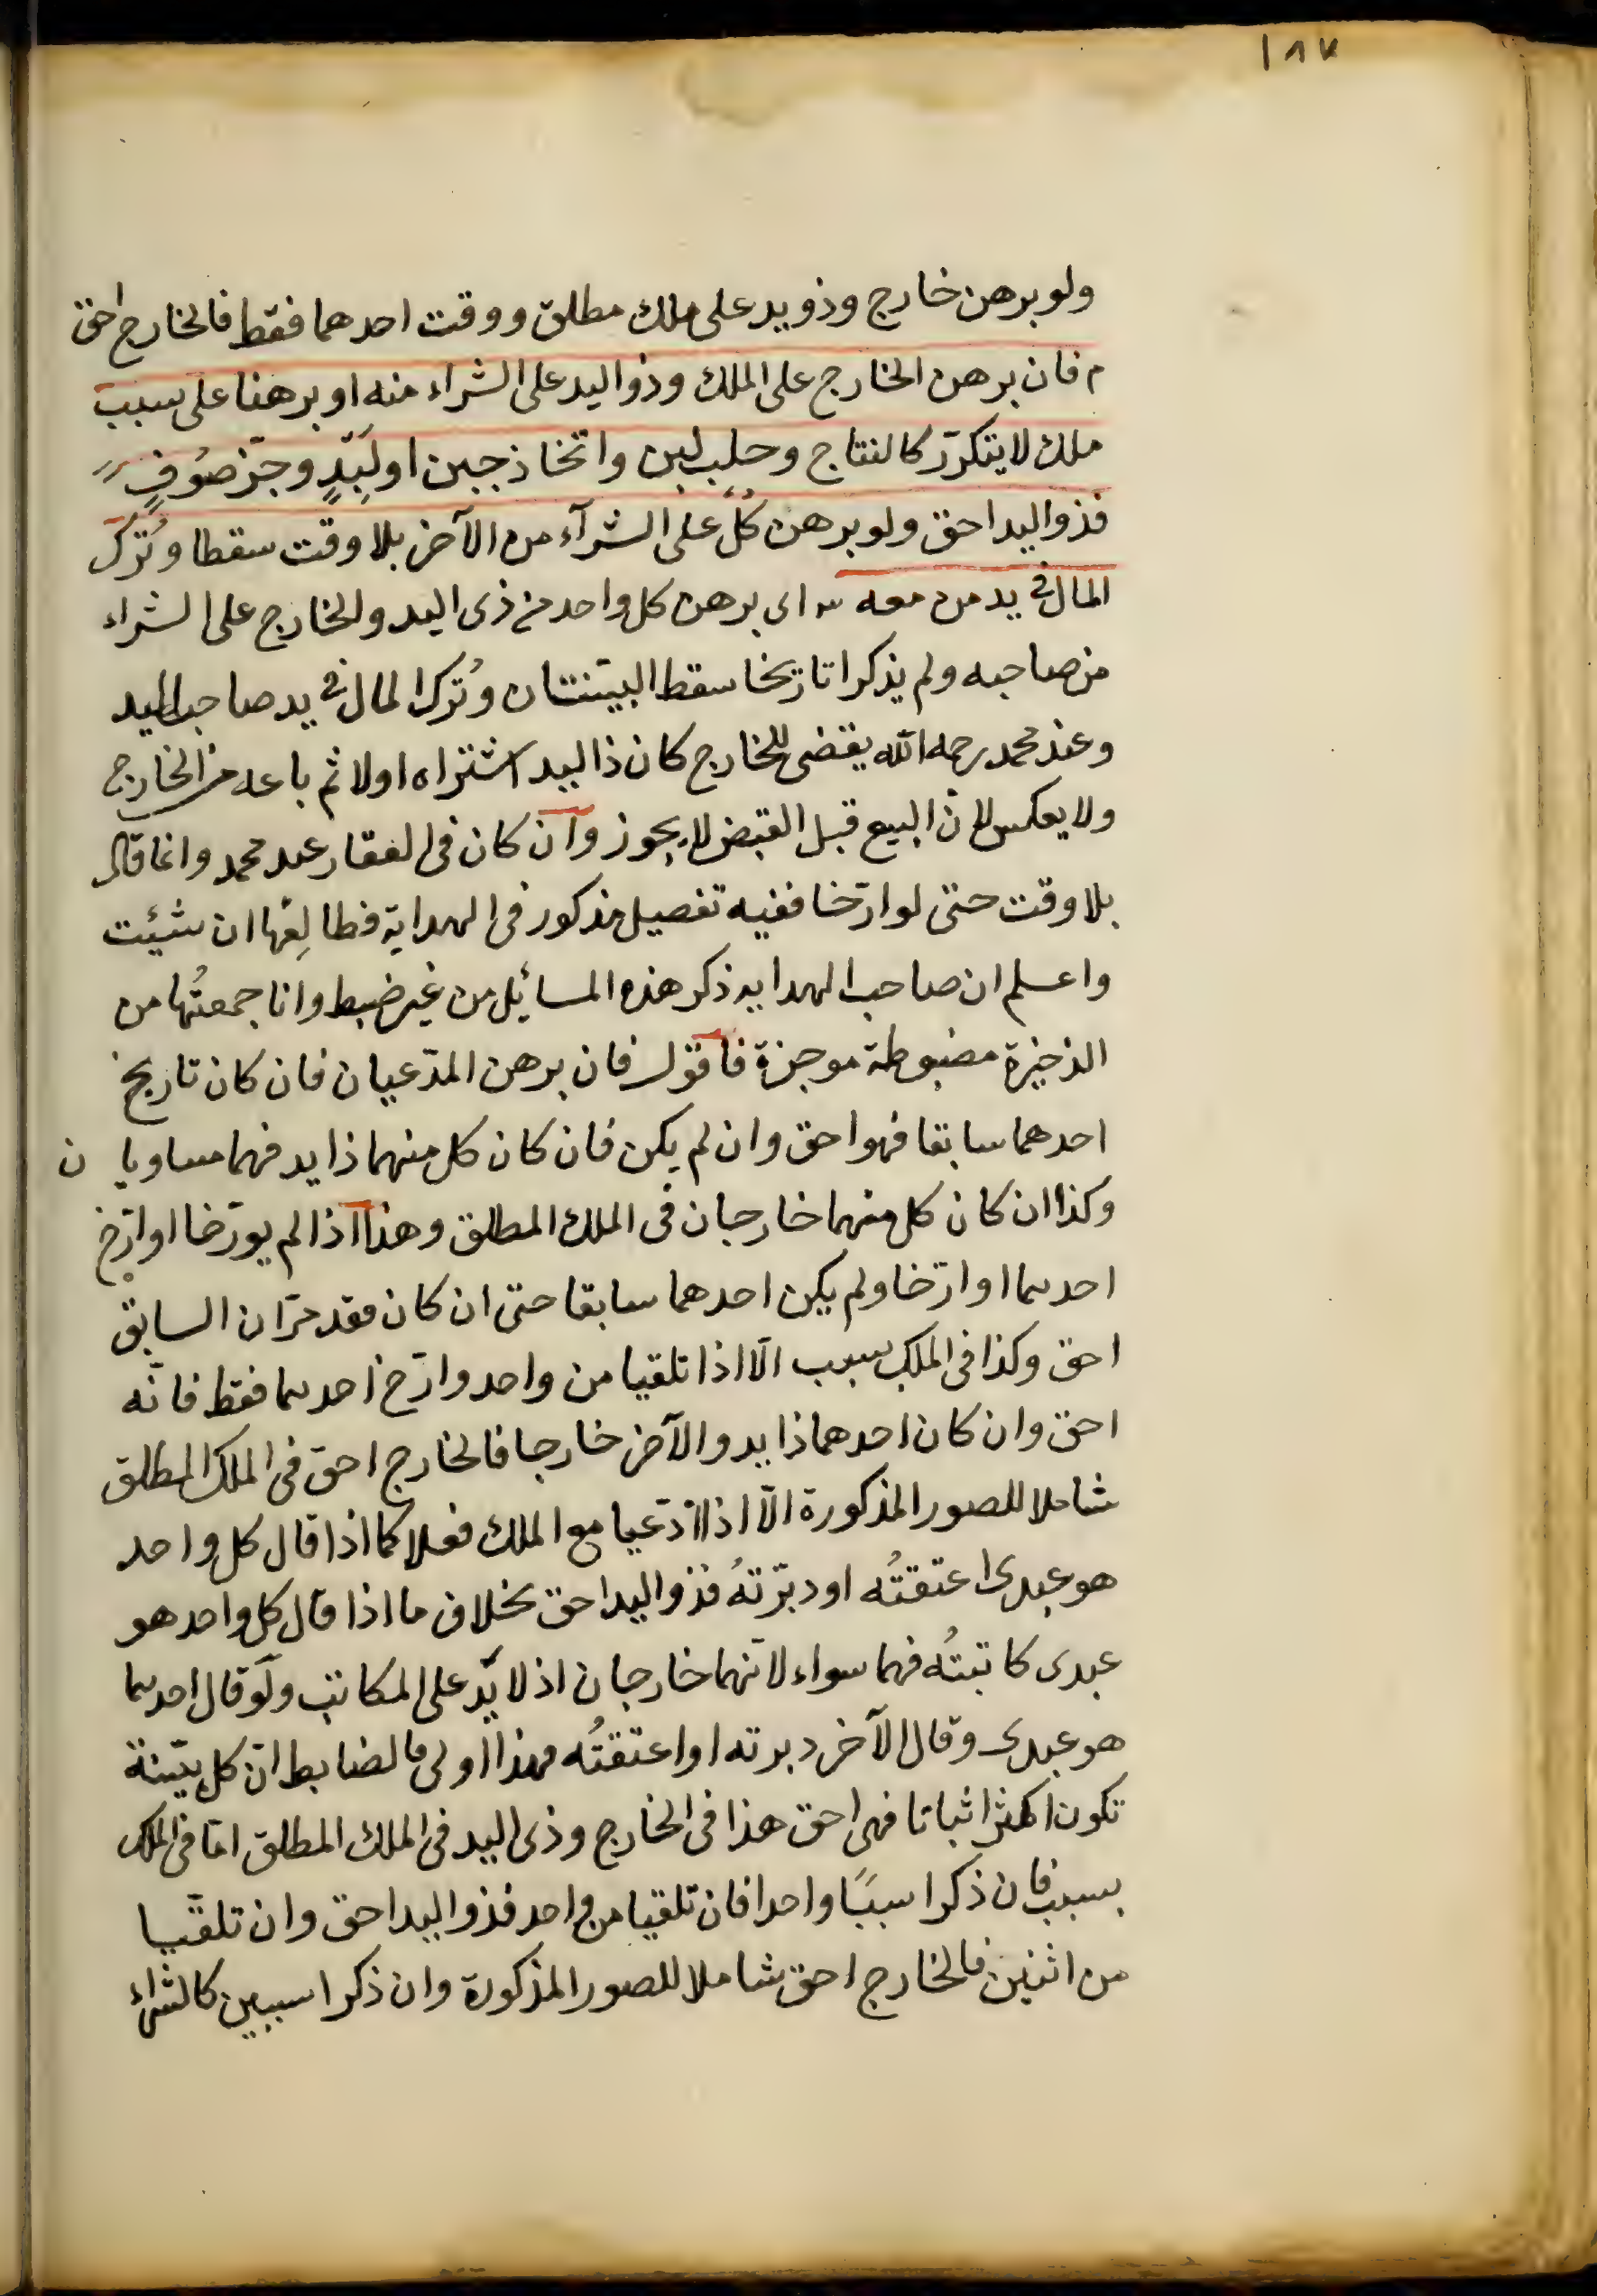 ١٨٧
ولو برهن خارج وذو يد على ملك مطلق ووقت احدهما فقط فالخارج احق
م فان برهن الخارج على الملك وذو اليد على الشراء منه او برهنا على سبب
ملك لا يتكرّر كالنتاج وحلب لبن واتخاذ جبن او لِبَدٍ وجزّ صُوفٍ
فذو اليد احق ولو برهن كلٌ على الشرآء من الآخر بلا وقت سقطا وتُرك
المال فى يد من معه ش اى برهن كل واحد من ذى اليد والخارج على الشراء
من صاحبه ولم يذكرا تاريخا سقط البيّنتان وتُرك المال فى يد صاحب اليد
وعند محمد رحمه الله يقضى للخارج كان ذا اليد اشتراه اولا ثم باعه من الخارج
ولا يعكس لان البيع قبل القبض لا يجوز وان كان فى العقار عند محمد وانما قال
بلا وقت حتى لو ارّخا ففيه تفصيل مذكور فى الهداية فطالِعْها ان شئت
واعلم ان صاحب الهداية ذكر هذه المسائل من غير ضبط وانا جمعتُها من
الذخيرة مضبوطة موجزة فاقول فان برهن المدّعيان فان كان تاريخ
احدهما سابقا فهو احق وان لم يكن فان كان كل منهما ذا يد فهما مساويان
وكذا ان كان كل منهما خارجان فى الملك المطلق وهذا اذا لم يورّخا او ارّخ
احدهما او ارّخا ولم يكن احدهما سابقا حتى ان كان فقد مرّ ان السابق
احق وكذا فى الملك بسبب الّا اذا تلقيا من واحد وارّخ احدهما فقط فانّه
احق وان كان احدهما ذا يد والآخر خارجا فالخارج احق فى الملك المطلق
شاملا للصور المذكورة الّا اذا ادّعيا مع الملك فعلا كما اذا قال كل واحد
هو عبدى اعتقتُه او دبّرتهُ فذو اليد احق بخلاف ما اذا قال كل واحد هو
عبدى كاتبتُه فهما سواء لانّهما خارجان اذ لا يد على المكاتب ولو قال احدهما
هو عبدى وقال الآخر دبرته او اعتقتُه فهذا اولى فالضابط انّ كل بيّنة
تكون اكثر اثباتا فهى احق هذا فى الخارج وذى اليد فى الملك المطلق امّا فى الملك
بسبب فان ذكرا سببًا واحدا فان تلقيا من واحد فذو اليد احق وان تلقّيا
من اثنين فالخارج احق شاملا للصور المذكورة وان ذكرا سببين كالشراء